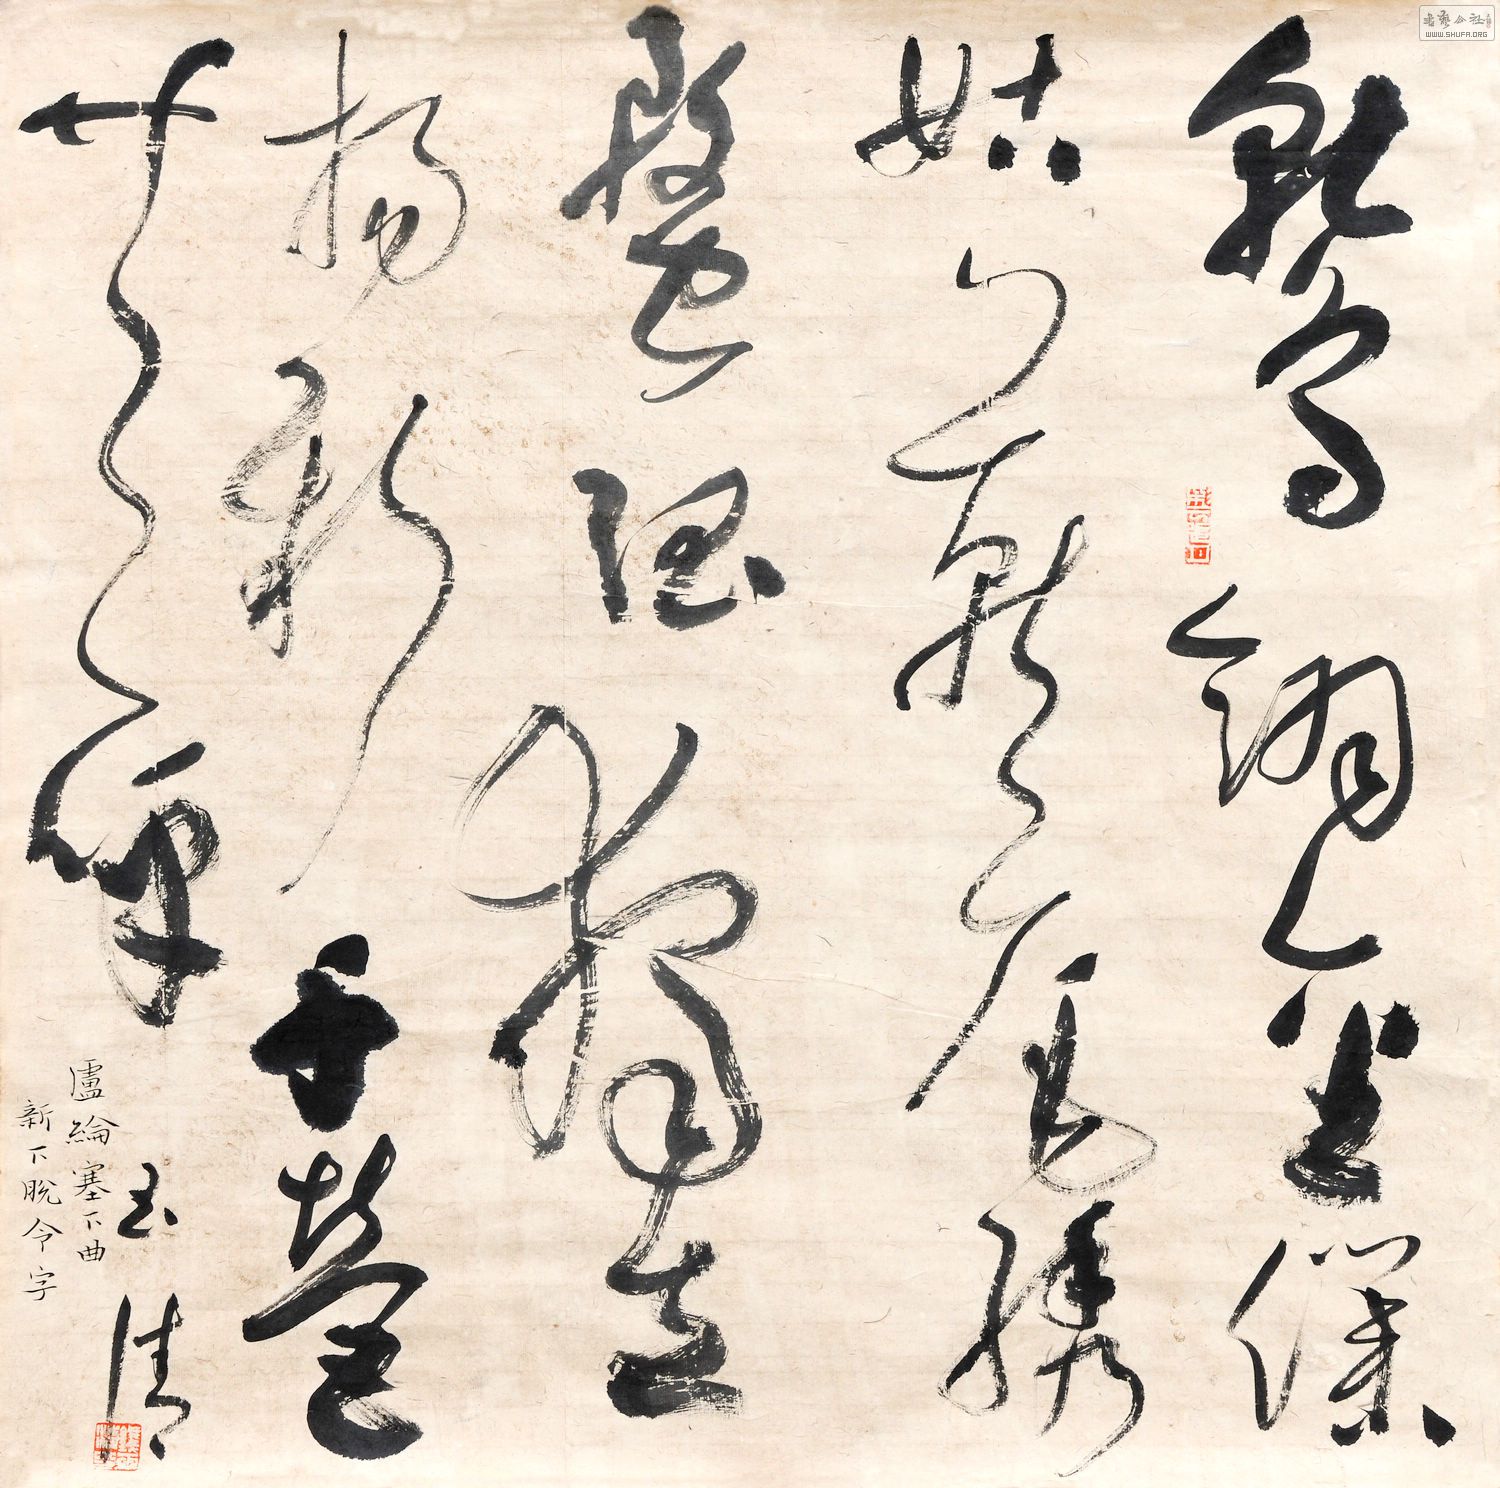 鷲翎金僕
姑燕尾繡
蝥弧獨立
揚新千營
共一呼
盧綸塞下曲
新下脫令字
玉清
書藝公社
WWW.SHUFA.ORG